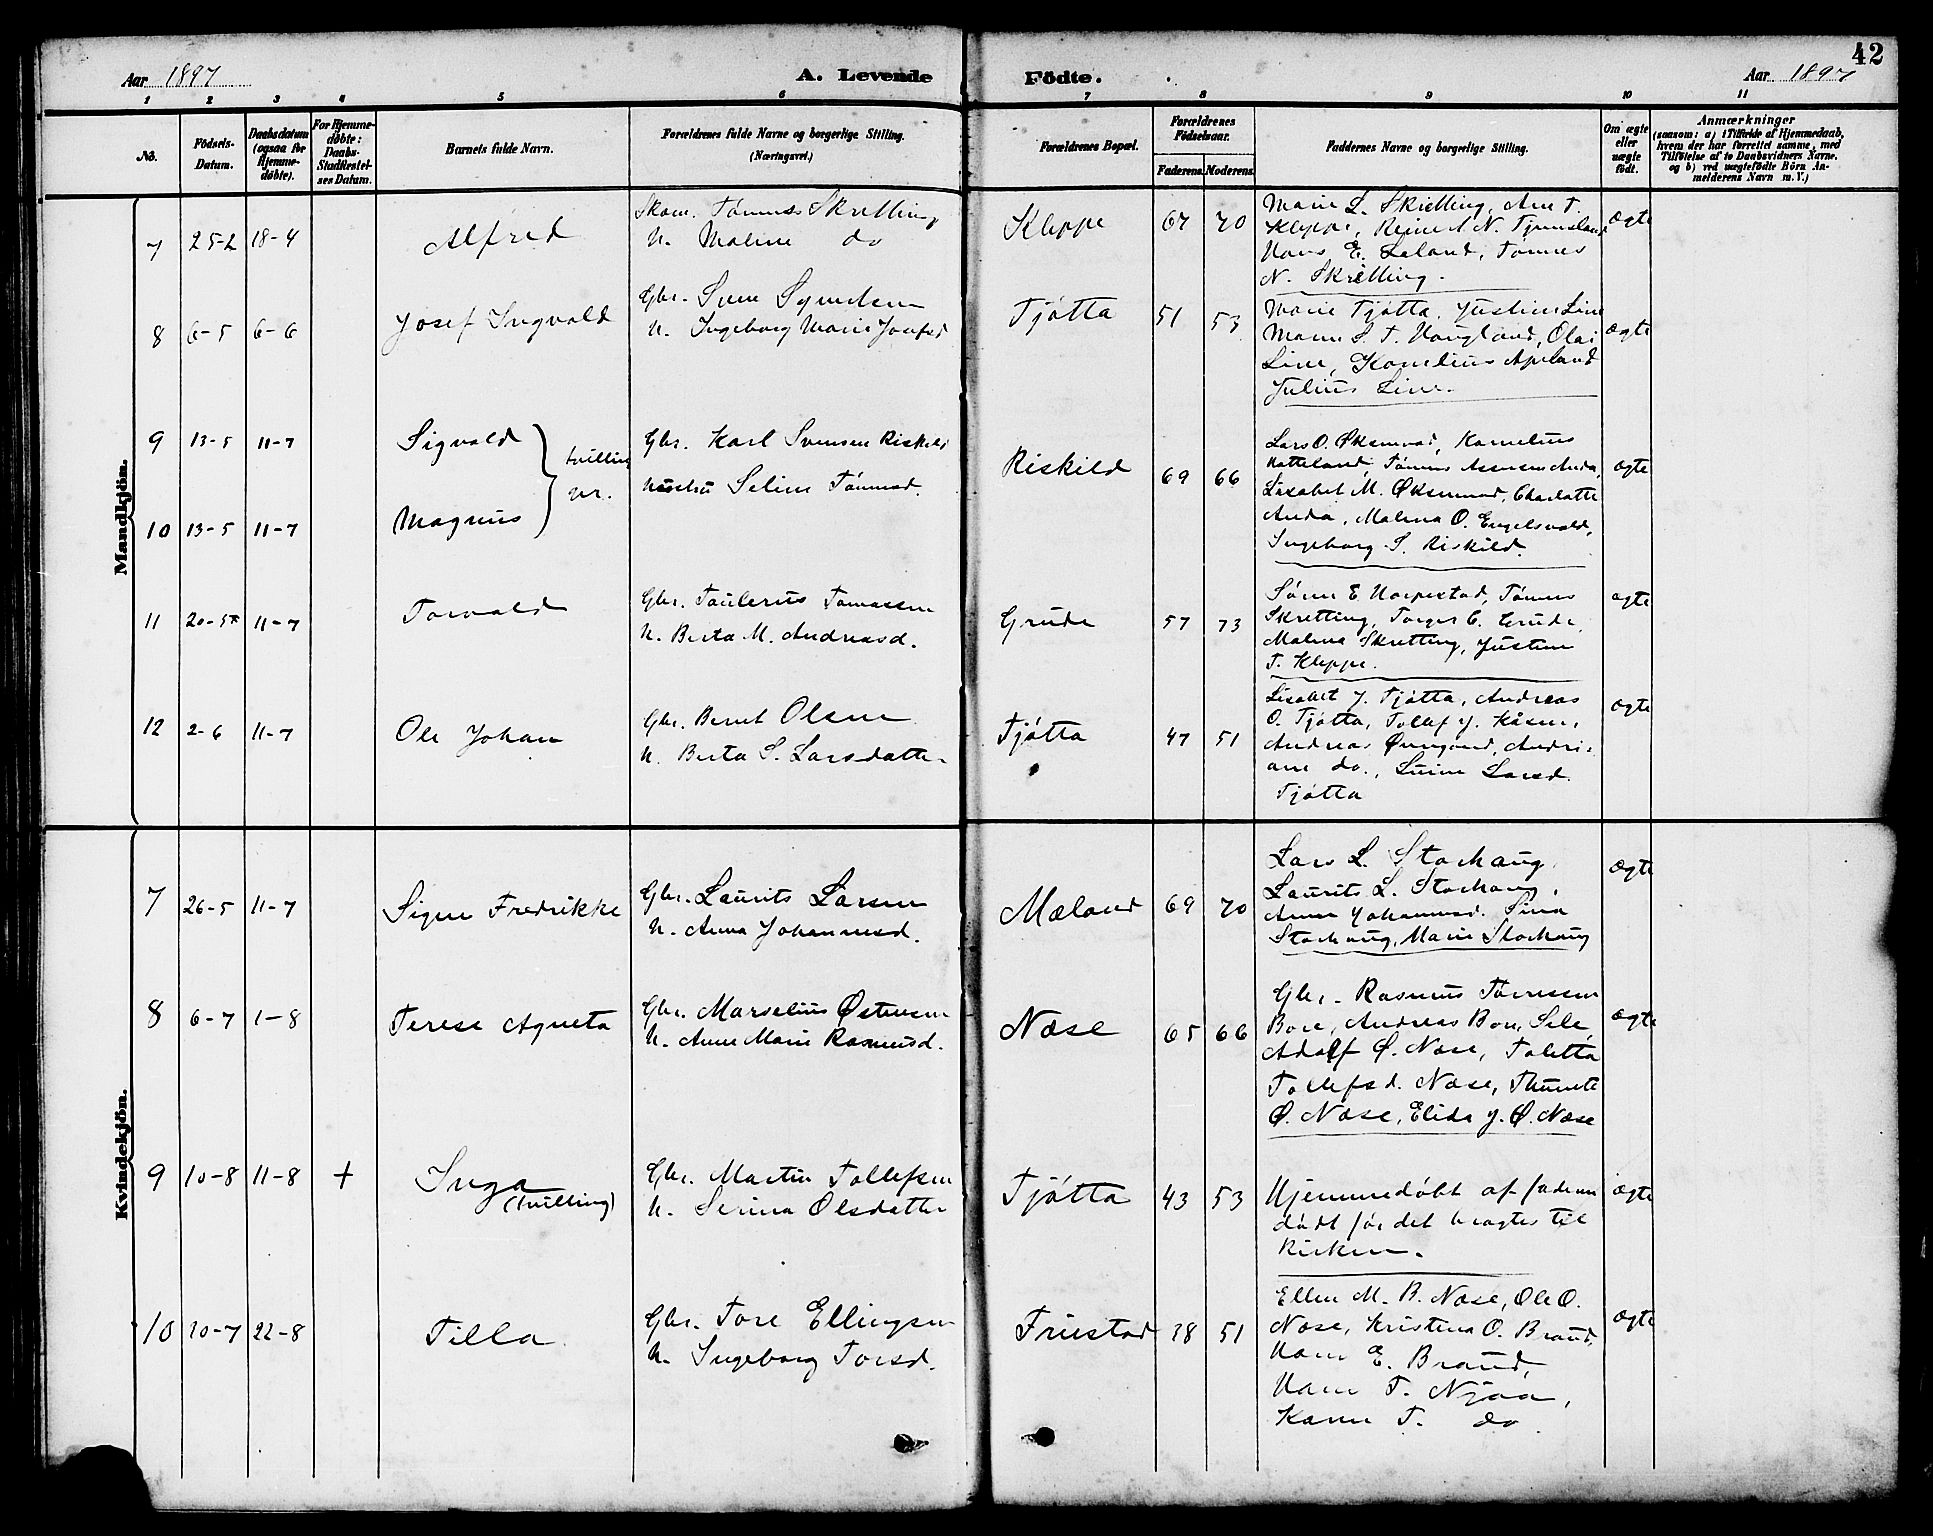 42
Aar 1897
A. Levende
Födte.
Aar 1897
1 2 3 4 5 6 7 8 9 10 11
No.
Födsels-
Datum.
Daabsdatum
(ogsaa for
Hjemme-
döbte).
For Hjemme-
döbte:
Daabs-
Stadfæstel-
ses Datum.
Barnets fulde Navn.
Forældrenes fulde Navne og borgerlige Stilling.
(Næringsvei.)
Forældrenes Bopæl.
Forældrenes
Födselsaar.
Faderens. Moderens.
Faddernes Navne og borgerlige Stilling.
Om ægte
eller
uægte
födt.
Anmærkninger
(saasom: a) i Tilfælde af Hjemmedaab,
hvem der har forrettet samme, med
Tilföielse af to Daabsvidners Navne,
og b) ved uægtefödte Börn An-
melderens Navn m. V.)
Mandkjön.
7 25-2 18-4 Alfred
Skom. Tønnes Skretting
H. Maline do
Kleppe 67 70
Marie L. Skretting, Ane T.
Kleppe, N. Tjensland
Hans E. Laland, Tønnes
N. Skretting.
ægte
8 6-5 6-6 Josef Ingvald
Gbr. Sven
H. Ingeborg Marie Josefsd
Tjøtta 51 53
Marie Tjøtta, Justine Line
S. T. Haugland, Olai
Line, Kornelius Apeland
Julius Line.
ægte
9 13-5 11-7 Sigvald
tvillin
nr.
10 13-5 11-7 Magnus
Gbr. Karl Svensen Riskild
Hustru Seline Tønnesd.
Riskild 69 66
Lars O. Øksnevad, Kornelius
Hatteland, Tønnes Assersen Anda,
Lisabet M. Øksnevad, Charlotte
Anda, Malena O. Engelsvold,
Ingeborg S. Riskild.
ægte
11 20-5 11-7 Torvald
Gbr. Taulerus Tomassen
H. Berta M. Andreasd.
Grude 57 73
Søren E Horpestad, Tønnes
Skretting, Torger C. Grude,
Malena Skretting, Justine
T. Kleppe.
ægte
12 2-6 11-7 Ole Johan
Gbr. Bernt Olsen
H. Berta S. Larsdatter
Tjøtta 47 51
Lisabet J. Tjøtta, Andreas
O. Tjøtta, Tollef J. Kåsen,
Andreas Andri-
ane do., Larsd.
Tjøtta
ægte
Kvindekjön.
7 26-5 11-7 Signe Fredrikke
Gbr. Laurits Larsen
H. Anna Johannesd.
Mæland 69 70
Lars L. Storhaug,
Laurits L. Storhaug,
Anna Johannesd. Sina
Storhaug, Marie Storhaug
ægte
8 6-7 1-8 Terese Agneta
Gbr. Marselius Østensen
H. Anne Marie Rasmusd.
Næse 65 66
Gbr. Rasmus Tørresen
Bore, Andreas Bore, Sele
Adolf Ø. Næse, Taletta
Tollefsd. Næse, Thunette
Ø. Næse, Elida J. Ø. Næse
ægte
9 10-8 11-8 + Inga
(tvilling)
Gbr. Martin Tollefsen
H. Serina Olsdatter
Tjøtta 43 53
Hjemmedøbt af faderen
dødt før det bragtes til
Kirken.
ægte
10 20-7 22-8 Tilla
Gbr. Tore Ellingsen
H. Ingeborg Torsd.
Friestad 38 51
Ellen M. B. Næse, Ole O.
Næse, Kristina O. Braud,
Hans E. Braud,
Hans T. Njaa,
Karen T. do
ægte